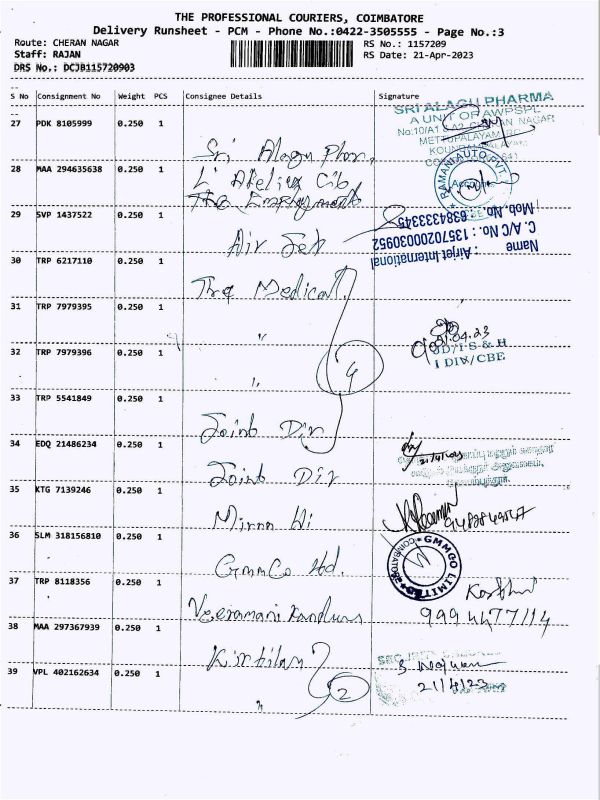 THE PROFESSIONAL COURIERS, COIMBATORE
Delivery Runsheet - PCM - Phone No.:0422-3505555 - Page No.:3
Route: CHERAN NAGAR RS No.: 1157209
Staff: RAJAN RS Date: 21-Apr-2023
DRS No.: DCJB115720903
S No Consignment No Weight PCS Consignee Details Signature
27 PDK 8105999 0.250 1
Sri Alagu
SRI ALAGU PHARMA
A UNIT OF AWPSPL
28 MAA 294635638 0.250 1
RAMANI AUTO PVT.
The Employment
29 SVP 1437522 0.250 1
Air Jet
Name : Airjet International
C. A/C No. : 13570200030952
Mob. No. 6384333345
30 TRP 6217110 0.250 1
The Medical
31 TRP 7979395 0.250 1
"
21.04.23
JD/I S & H
I DIV/CBE
32 TRP 7979396 0.250 1
"
4
33 TRP 5541849 0.250 1
Joint Dir
34 EDQ 21486234 0.250 1
Joint Dir
35 KTG 7139246 0.250 1
36 SLM 318156810 0.250 1
GMMCO Ltd.
GMMCO LIMITED
COIMBATORE
37 TRP 8118356 0.250 1
Veeramani
9994477114
38 MAA 297367939 0.250 1
21/4/23
39 VPL 402162634 0.250 1
"
2